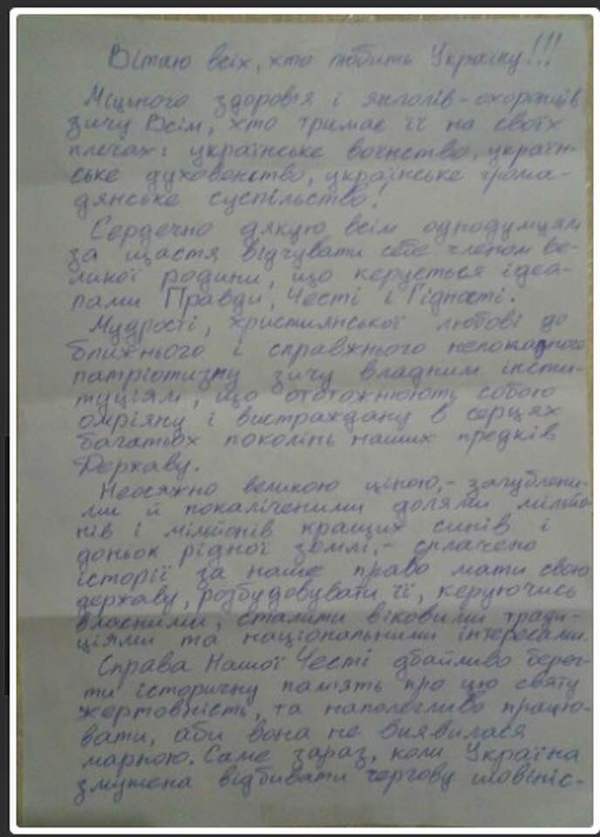 Вітаю всіх, хто любить Україну!!!
Міцного здоров'я і янголів-охоронців
зичу Всім, хто тримає її на своїх
плечах: українське воїнство, україн-
ське духовенство, українське грома-
дянське суспільство!
Сердечно дякую всім однодумцям
за щастя відчувати себе членом ве-
ликої родини, що керується ідеа-
лами Правди, Честі і Гідності.
Мудрості, християнської любові до
ближнього і справжнього непоказного
патріотизму зичу владним інсти-
туціям, що ототожнюють собою
омріяну і вистраждану в серцях
багатьох поколінь наших предків
Державу.
Неосяжно великою ціною,- загублени-
ми й покаліченими долями мільйо-
нів і мільйонів кращих синів і
доньок рідної землі,- сплачено
історії за наше право мати свою
державу, розбудовувати її, керуючись
власними, сталими віковими тради-
ціями та національними інтересами.
Справа Нашої Честі дбайливо берег-
ти історичну пам'ять про цю святу
жертовність, та наполегливо працю-
вати, аби вона не виявилася
марною. Саме зараз, коли Україна
змушена відбивати чергову шовініс-